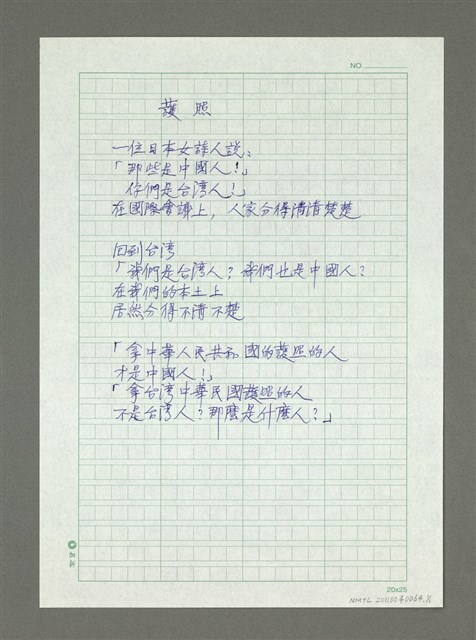 NO
護照
一位日本女詩人說：
「那些是中國人！」
你們是台湾人！」
在國際會議上，人家分得清清楚楚
回到台湾
「我們是台湾人？我們也是中國人？
在我們的本土上
居然分得不清不楚
「拿中華人民共和國的護照的人
才是中國人！」
「拿台湾中華民國護照的人
不是台湾人？那麼是什麼人？」
20x25